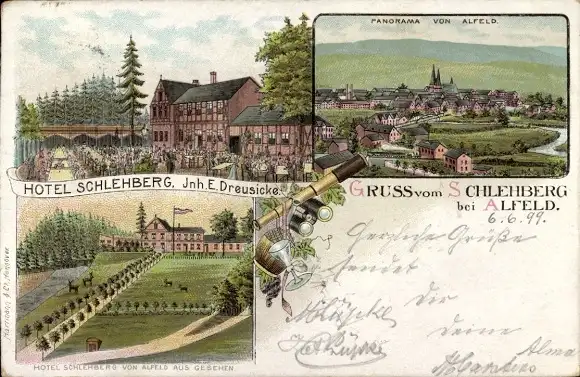 PANORAMA VON ALFELD.
HOTEL SCHLEHBERG. Jnh. E. Dreusicke.
GRUSS vom SCHLEHBERG
bei ALFELD.
6.6.99.
Herzliche Grüße
sendet
Dir
deine
Alma
HOTEL SCHLEHBERG VON ALFELD AUS GESEHEN